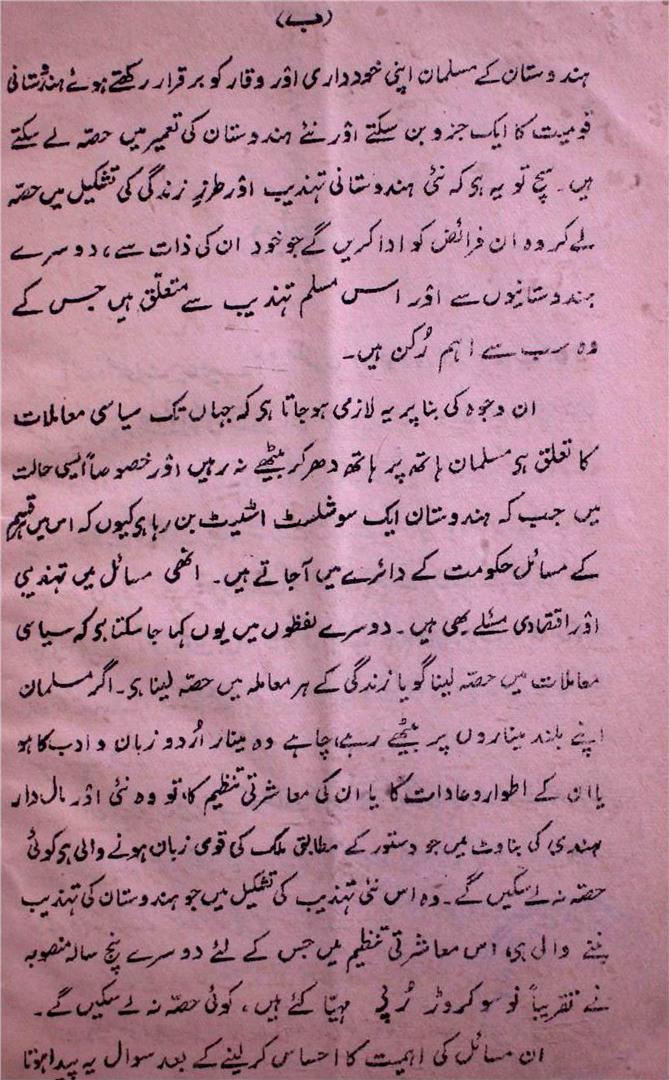 (ب)
ہندوستان کے مسلمان اپنی خودداری اور وقار کو برقرار رکھتے ہوئے ہندوستانی
قومیت کا ایک جزو بن سکتے اور نئے ہندوستان کی تعمیر میں حصّہ لے سکتے
ہیں۔ سچ تو یہ ہی کہ نئی ہندوستانی تہذیب اور طرزِ زندگی کی تشکیل میں حصّہ
لے کر وہ ان فرائض کو ادا کریں گے جو خود ان کی ذات سے، دوسرے
ہندوستانیوں سے اور اس مسلم تہذیب سے متعلّق ہیں جس کے
وہ سب سے اہم رُکن ہیں۔
ان وجوہ کی بنا پر یہ لازمی ہوجاتا ہی کہ جہاں تک سیاسی معاملات
کا تعلق ہی مسلمان ہاتھ پر ہاتھ دھر کر بیٹھے نہ رہیں اور خصوصاً ایسی حالت
میں جب کہ ہندوستان ایک سوشلسٹ اسٹیٹ بن رہا ہی کیوں کہ اس میں ہر قسم
کے مسائل حکومت کے دائرے میں آجاتے ہیں۔ انھی مسائل میں تہذیبی
اور اقتصادی مسئلے بھی ہیں۔ دوسرے لفظوں میں یوں کہا جاسکتا ہی کہ سیاسی
معاملات میں حصّہ لینا گویا زندگی کے ہر معاملہ میں حصّہ لینا ہی۔ اگر مسلمان
اپنے بلند میناروں پر بیٹھے رہے، چاہے وہ مینار اُردو زبان و ادب کا ہو
یا ان کے اطوار و عادات کا یا ان کی معاشرتی تنظیم کا، تو وہ نئی اور مال دار
ہندی کی بناوٹ میں جو دستور کے مطابق ملک کی قومی زبان ہونے والی ہی کوئی
حصّہ نہ لے سکیں گے۔ وہ اس نئی تہذیب کی تشکیل میں جو ہندوستان کی تہذیب
بننے والی ہی، اس معاشرتی تنظیم میں جس کے لئے دوسرے پنج سالہ منصوبہ
نے تقریباً نو سو کروڑ رُپی مہیّا کئے ہیں، کوئی حصّہ نہ لے سکیں گے۔
ان مسائل کی اہمیت کا احساس کرلینے کے بعد سوال یہ پیدا ہوتا